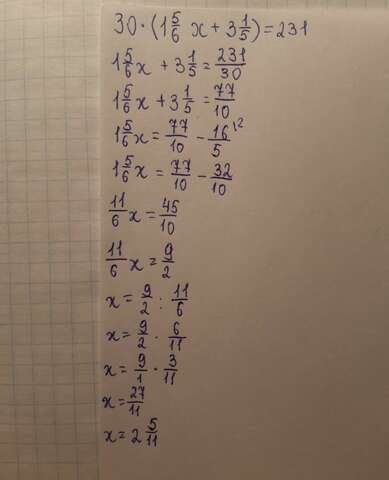 30·(1 5/6 x + 3 1/5) = 231
1 5/6 x + 3 1/5 = 231/30
1 5/6 x + 3 1/5 = 77/10
1 5/6 x = 77/10 - 16/5 ^12
1 5/6 x = 77/10 - 32/10
11/6 x = 45/10
11/6 x = 9/2
x = 9/2 : 11/6
x = 9/2 · 6/11
x = 9/1 · 3/11
x = 27/11
x = 2 5/11